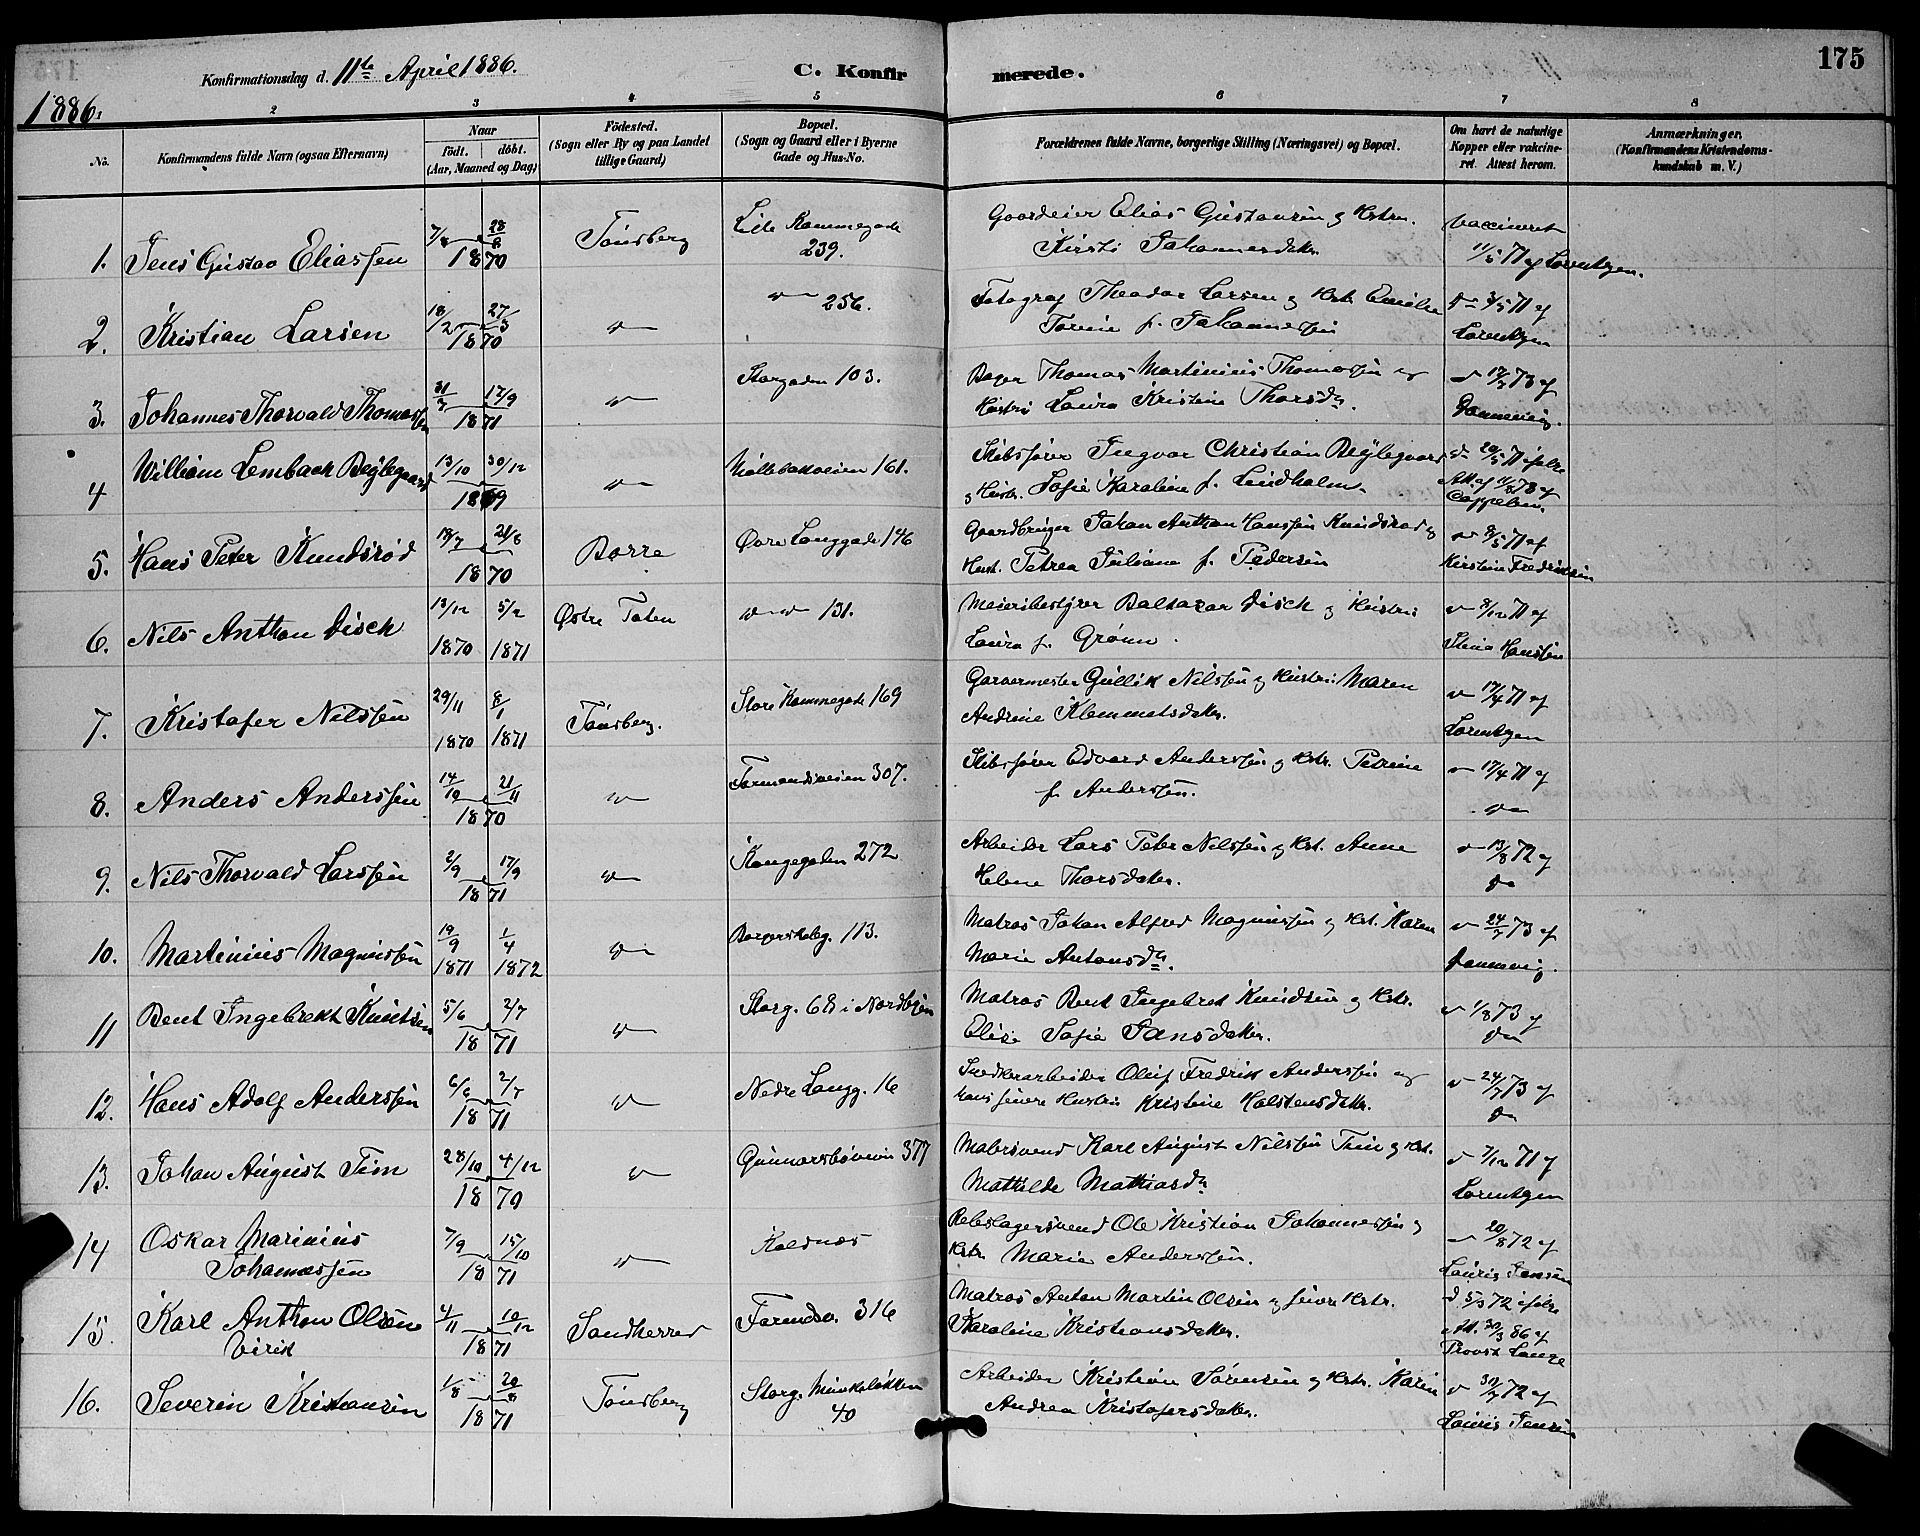 175
Konfirmationsdag d. 11te April 1886.
C. Konfirmerede.
1886.
2 3 4 5 6 7 8
No. Konfirmandens fulde Navn (ogsaa Efternavn) Naar født. døbt. (Aar, Maaned og Dag) Födested. (Sogn eller By og paa Landet tillige Gaard) Bopæl. (Sogn og Gaard eller i Byerne Gade og Hus-No. Forældrenes fulde Navne, borgerlige Stilling (Næringsvei) og Bopæl. Om havt de naturlige Kopper eller vakcineret. Attest herom. Anmærkninger. (Konfirmandens Kristendomskundskab m. V.)
1. Jens Gustav Eliassen 28/8 1870 Tönsberg Lille Kammegade 239. Gaardeier Elias Gustavsen & Hstru. Kirsti Johannesdatter. Vaccineret 11/5 71 af Lorentzen.
2. Kristian Larsen 18/2 27/3 1870 " " 256. Fotograf Theodor Larsen & Hst. Emilie Torine f. Johannessen " 3/5 71 af Lorentzen
3. Johannes Thorvald Thomassen 31/7 17/9 1871 " Storgaden 103. Bager Thomas Martinius Thomassen og Hustru Laura Kristine Thorsdtr. " 12/7 73 af Dannevig.
4 William Lembach Bøylegaard 13/10 30/12 1869 " Møllebakveien 161. Skibsfører Ingvar Christian Bøylegaard & Hustr. Sofie Karoline f. Lindholm. " 20/5 71 ifølge Att. af 11/8 78 af Cappelen.
5. Hans Peter Knudsrød 18/7 21/8 1870 Borre Øvre Langgade 146 Gaardbruger Johan Anthon Hanssen Knudsrød & Hust. Petrea Juliane f. Pedersen " 8/5 71 af Kirstine Fredriksen
6. Nils Anthon Disch 13/12 1870 5/2 1871 Østre Toten " " 131. Meieribestyrer Baltazar Disch & Hustru Laura f. Grønn. " 8/12 71 af Stina Hanssen
7. Kristofer Nilssen 29/11 1870 8/1 1871 Tönsberg. Store Kammegade 169 Garvermester Gullik Nilssen & Hustru Maren Andrine Klemmetsdatter. " 17/4 71 af Lorentzen
8. Anders Anderssen 14/10 21/11 1870 " Formandsveien 307. Skibsfører Edvard Anderssen & Hstr. Petrine f. Anderssen. " 17/4 71 af "
9. Nils Thorvald Larssen 2/9 17/9 1871 " Kongegaden 272 Arbeider Lars Peter Nilssen & Hst. Anne Helene Thorsdatter. " 13/8 72 af "
10. Martinius Magnussen 19/9 1871 1/4 1872 " Borgerskoleg. 113. Matros Johan Alfred Magnussen & Hst. Karen Marie Antonsdtr. " 24/7 73 af Dannevig.
11 Bent Ingebrekt Knutsen 5/6 2/7 1871 " Storg. 68 i Nordbyen Matros Bent Ingebret Knudsen & Hstr. Elise Sofie Jansdatter. " 1/8 73 af "
12. Hans Adolf Anderssen 6/6 2/7 1871 " Nedre Langg. 16 Snedkerarbeider Oluf Fredrik Anderssen og hans senere Hustru Kristine Holstensdatter. " 24/7 73 af "
13. Johan August Tim 28/10 4/12 1870 " Gunnarsbøveien 377 Malersvend Karl August Nilssen Tim & Hst. Mathilde Mathiasdtr " 7/12 71 af Lorentzen
14 Oskar Marinius Johannessen 7/9 15/10 1871 " Kaldnæs Rebslagersvend Ole Kristian Johannessen & Hstr. Marie Anderssen. " 20/8 72 af Lauris Jensen
15. Karl Anthon Olsen Virik 4/11 10/12 1871 Sandherred Formdsv. 316 Matros Anton Martin Olsen & senere Hstr. Karoline Kristiansdatter. " 5/3 72 ifølge Att. 30/3 86 af Provst Lange
16. Severin Kristiansen 1/8 20/8 1871 Tönsberg Storg. Munkeløkken 40 Arbeider Kristian Sørensen & Hstr. Karin Andrea Kristofersdatter. " 30/7 72 af Lauris Jensen